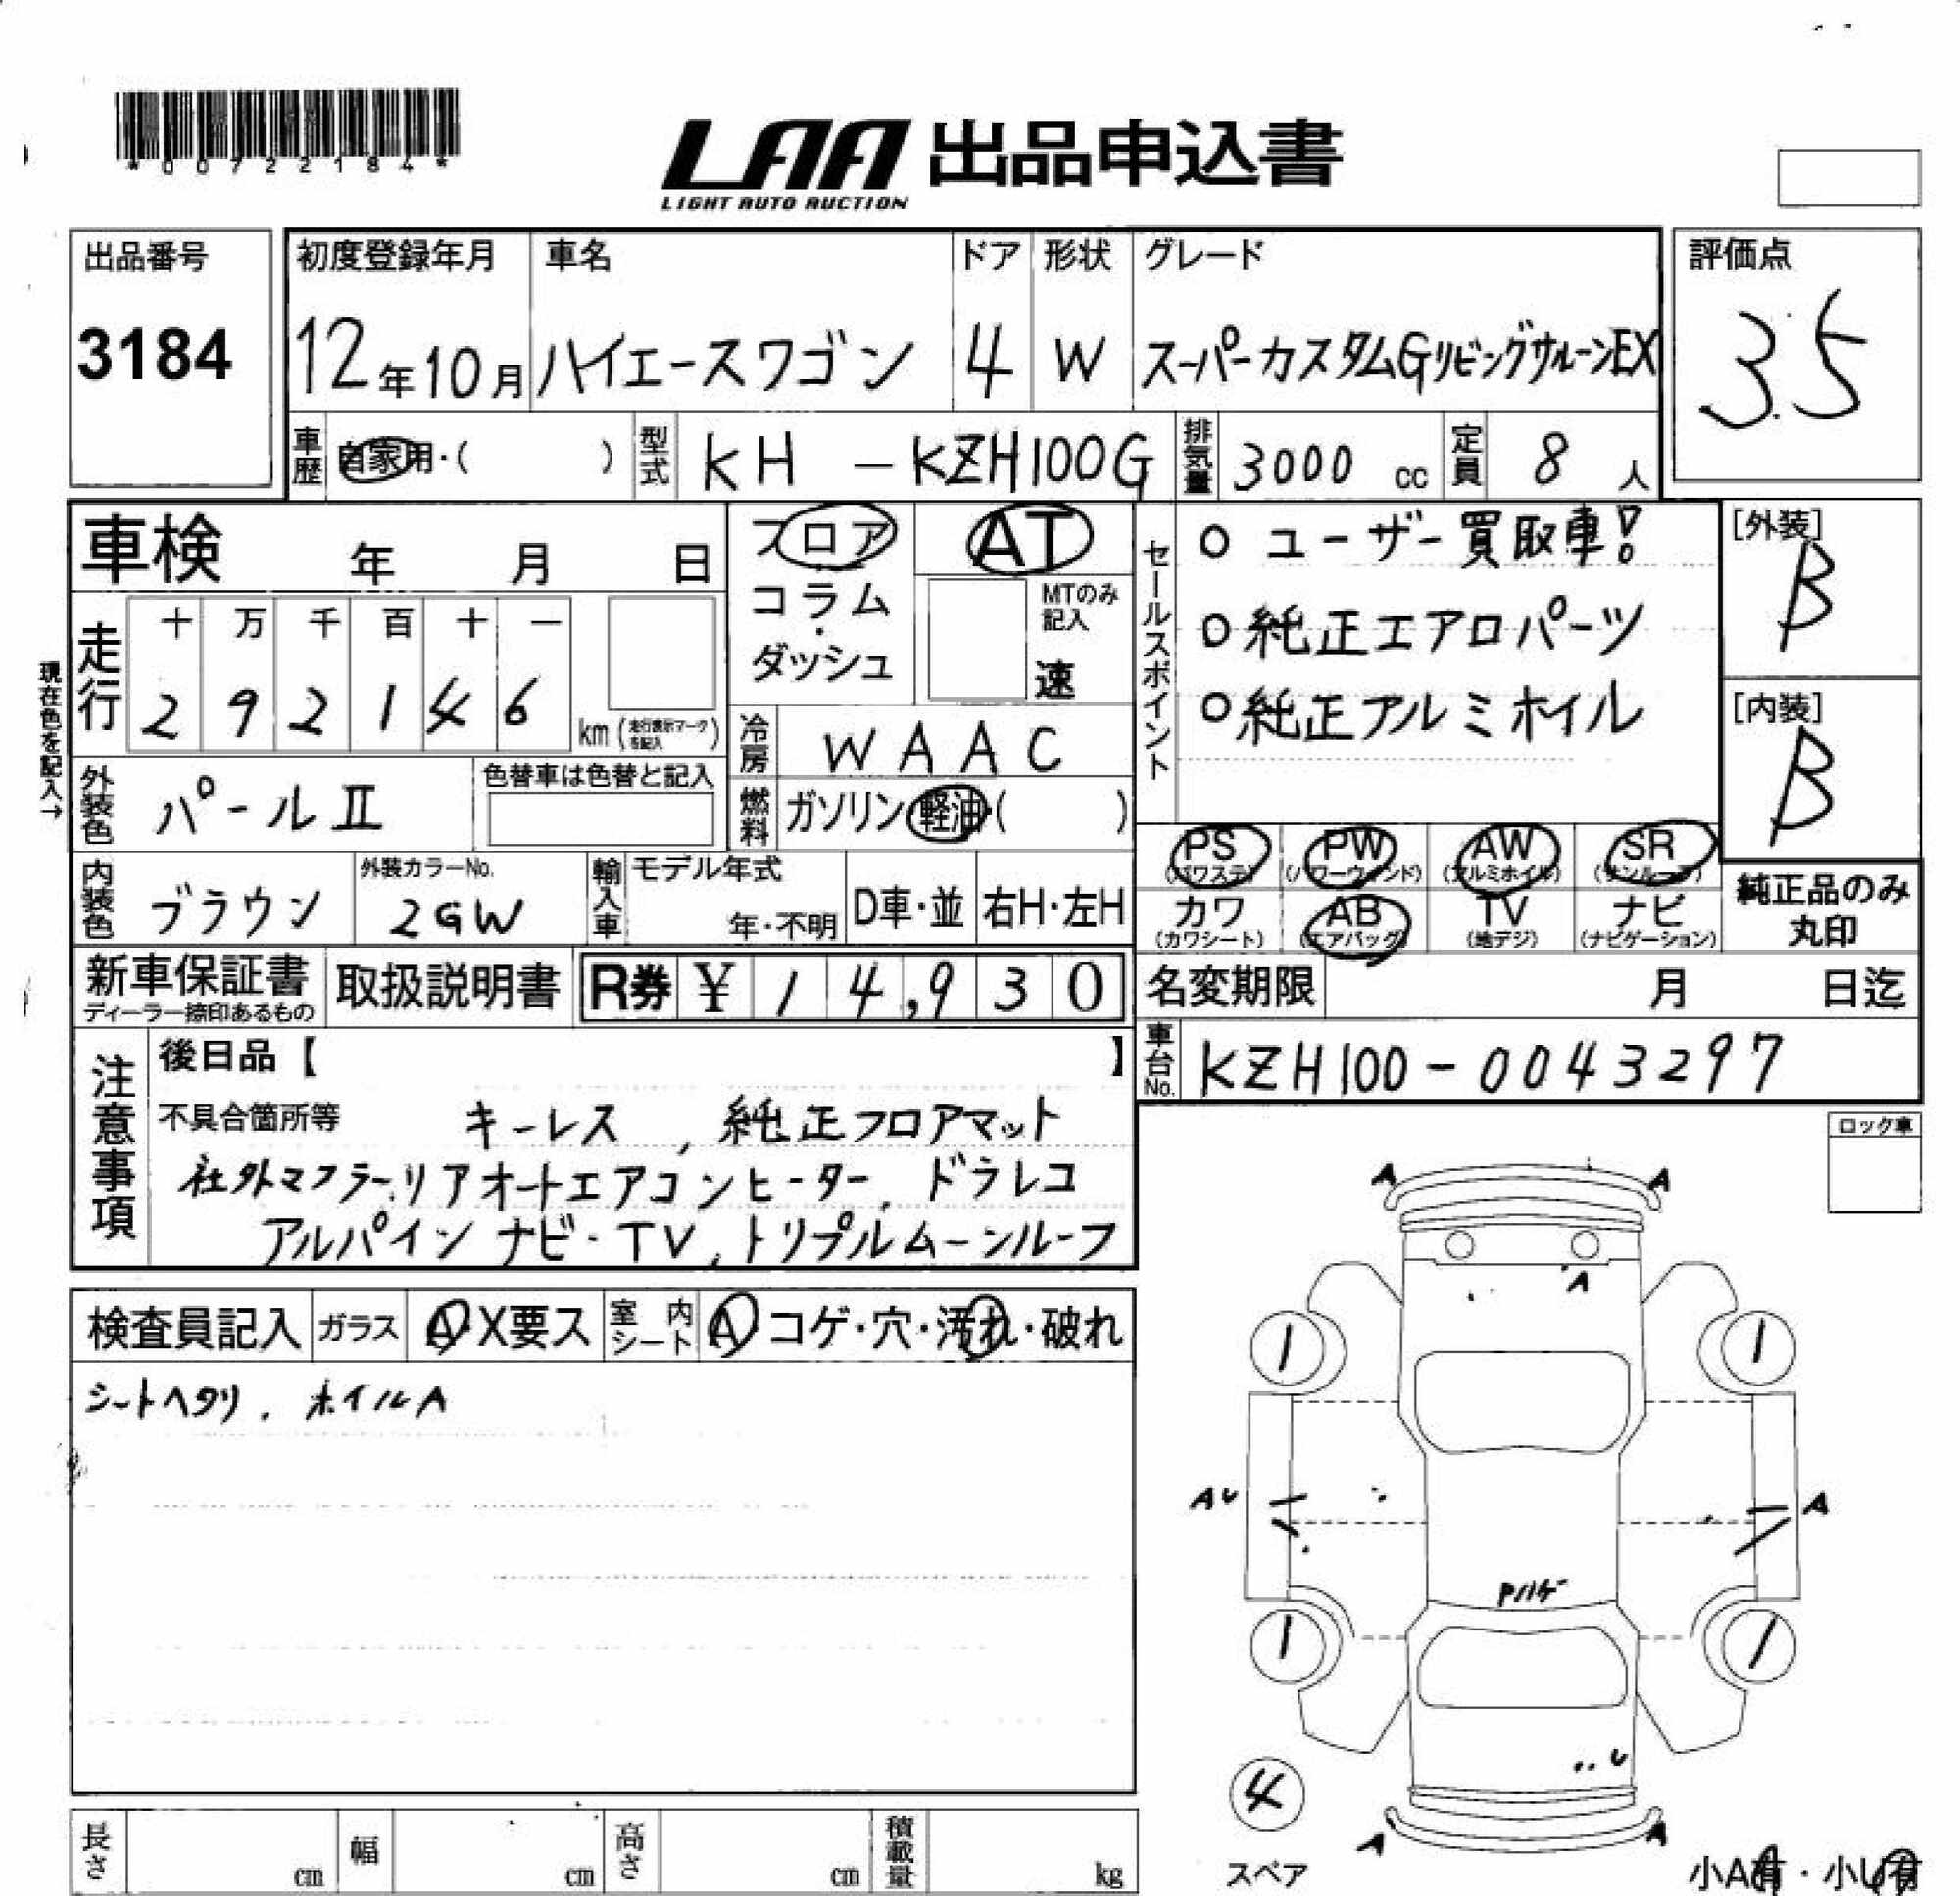 *00722184*
LAA 出品申込書
LIGHT AUTO AUCTION
出品番号
3184
初度登録年月
12年10月
車名
ハイエースワゴン
ドア
4
形状
W
グレード
スーパーカスタムGリビングサルーンEX
評価点
3.5
車歴 自家用・( )
型式 KH - KZH100G
排気量 3000 cc
定員 8 人
車検 年 月 日
フロア
コラム
・
ダッシュ
AT
MTのみ
記入
速
セールスポイント
○ ユーザー買取車!
○ 純正エアロパーツ
○ 純正アルミホイル
[外装]
B
[内装]
B
現在色を記入→
走行
十 万 千 百 十 一
2 9 2 1 4 6
km (走行表示マークを記入)
冷房 WAAC
燃料 ガソリン・軽油・( )
外装色 パールⅡ
色替車は色替と記入
PS (パワステ)
PW (パワーウィンド)
AW (アルミホイル)
SR (サンルーフ)
カワ (カワシート)
AB (エアバッグ)
TV (地デジ)
ナビ (ナビゲーション)
純正品のみ
丸印
内装色 ブラウン
外装カラーNo.
2GW
輸入車
モデル年式
年・不明
D車・並
右H・左H
新車保証書
ディーラー捺印あるもの
取扱説明書
R券 ¥ 14,930
名変期限 月 日迄
車台No. KZH100-0043297
注意事項
後日品【 】
不具合箇所等 キーレス, 純正フロアマット
社外マフラー, リアオートエアコンヒーター, ドラレコ
アルパイン ナビ・TV, トリプルムーンルーフ
ロック車
検査員記入
ガラス A・X要ス
室内シート A コゲ・穴・汚れ・破れ
シートヘタリ, ホイルA
A A
A
1 1
AU A
Pハゲ
1 1
U
4
スペア
A A
小A有・小U有
長さ cm
幅 cm
高さ cm
積載量 kg